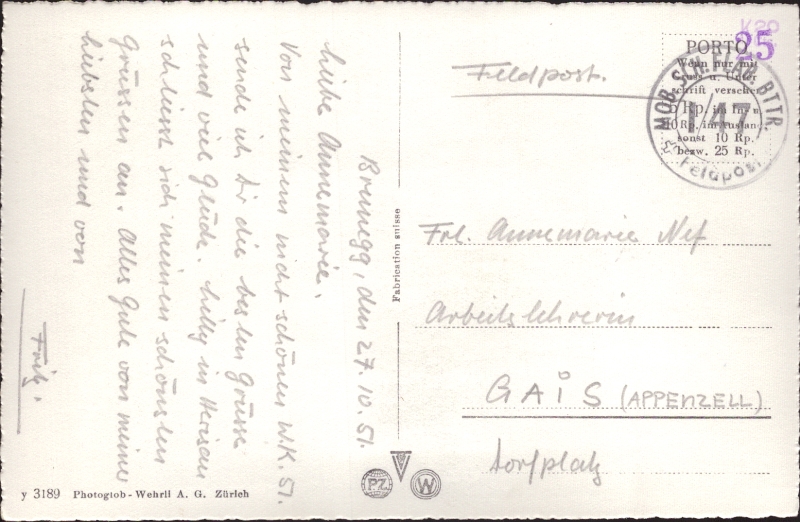 Brunegg, den 27.10.51.
Liebe Annemarie.
Von meinem nicht schönen W.K. 51.
sende ich Dir die besten Grüsse
und viel Glück. in Herisau
schliesst sich meinen schönsten
Grüssen an. Alles Gute von meiner
liebsten und von
Fritz.
y 3189 Photoglob-Wehrli A. G. Zürich
Fabrication suisse
PZ
W
Feldpost.
K20
25
PORTO
Wenn nur mit
Gruss u. Unter
schrift versehen
5 Rp. im In- u
10 Rp. im Ausland
sonst 10 Rp.
bezw. 25 Rp.
MOB. SCH. FLAB. BTTR.
I/47
Feldpost
Frl. Annemarie Nef
Arbeitslehrerin
GAIS (APPENZELL)
Dorfplatz